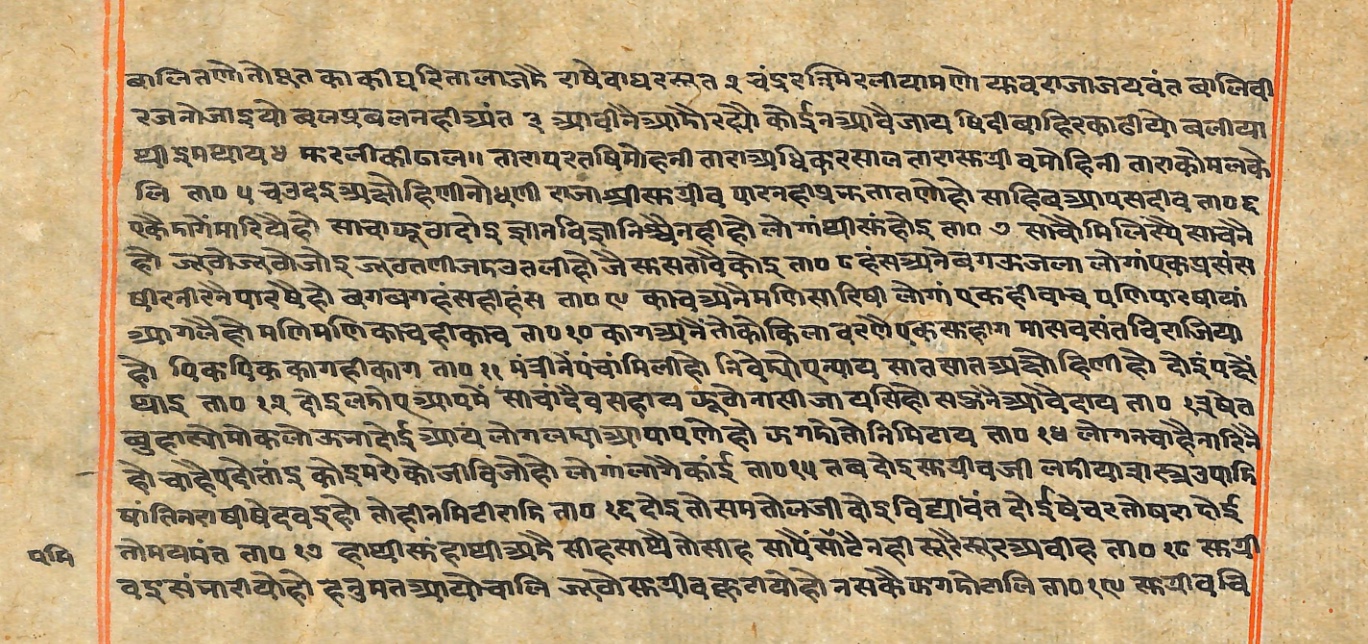 बालितणो तो पुत का की घरि ताला जडै राषे वा घरसूत २ चंद्ररश्मि रलीयामणो युवराजा जयवंत बालि वी
र जनो जाइयो बल प्रबल नही अंत ३ आवी नै आडो रह्यो कोई न आवै जाय षिदी बाहिर काढीयो बलीया
थी इम थाय ४ झरली की ढाल॥ तारा परतषि मोहनी तारा अधिक रसाल तारा सुग्रीव मोहिनी तारा कोमल के
लि ता० ५ चउदइ अक्षौहिणीनो धणी राजा श्री सुग्रीव पार न ही प्रभुता तणो हो साहिब आप सदीव ता० ६
एकै दागें मारिवै हो साचा झूठा दोइ ज्ञान विज्ञा निश्चै नही हो लोगां थी सुं होइ ता० ७ साचो मिलिस्यै साच नै
हो जूठो जूठो जोइ जूठ तणी जड उतली हो जै सुसतावै कोइ ता० ८ हंस अनै बग ऊजला लोगां एक प्रसंस
षीर नीर नै पारषै हो बग बग हंस ही हंस ता० ९ काच अनै मणि सारिषी लोगां एक ही वाच पणि पारषीयां
आगलै हो मणि मणि काच ही काच ता० १० काग अनैं तो कोकिला वरणै एक सुहाग मास वसंत विराजिया
हो पिक पिक काग ही काग ता० ११ मंत्रीनें पंचां मिली हो निवेड्यो ए न्याय सात सात अक्षौहिणी हो दोइं पक्षें
थाइ ता० १२ दोइ लडो ए आपमें साचां देव सहाय झूठो नासी जायसि हो सऊनै आवै दाय ता० १३ षेत
बुहास्यो मोकलो ऊभा दोई आय लोग लड्या आपापणे हो झगडो तो नि मिटाय ता० १४ लोग न चाहै नारिनै
हो चाहै पदो तांइ कोइ मरो को जीविजो हो लोगां लागै कांई ता० १५ तब दोइ सुग्रीवजी लडीया शस्त्र उपाडि
षांति न राषी षेदवइ हो तो ही न मिटी राडि ता० १६ दोइ तो सम तोलजी दोइ विद्यावंत दोई षेचर तो षरा दोई
तो मयमंत ता० १७ हाथी सुं हाथी अडै सीह साथै तो सीह सापैं सॉटै नही सूरै सूर अबीह ता० १८ सुग्री
पडि
वइ संभारीयो हो हनुमत आयो चालि जूठो सुग्रीव कूटीयो हो न सकै झगडो टालि ता० १९ सुग्रीव वि